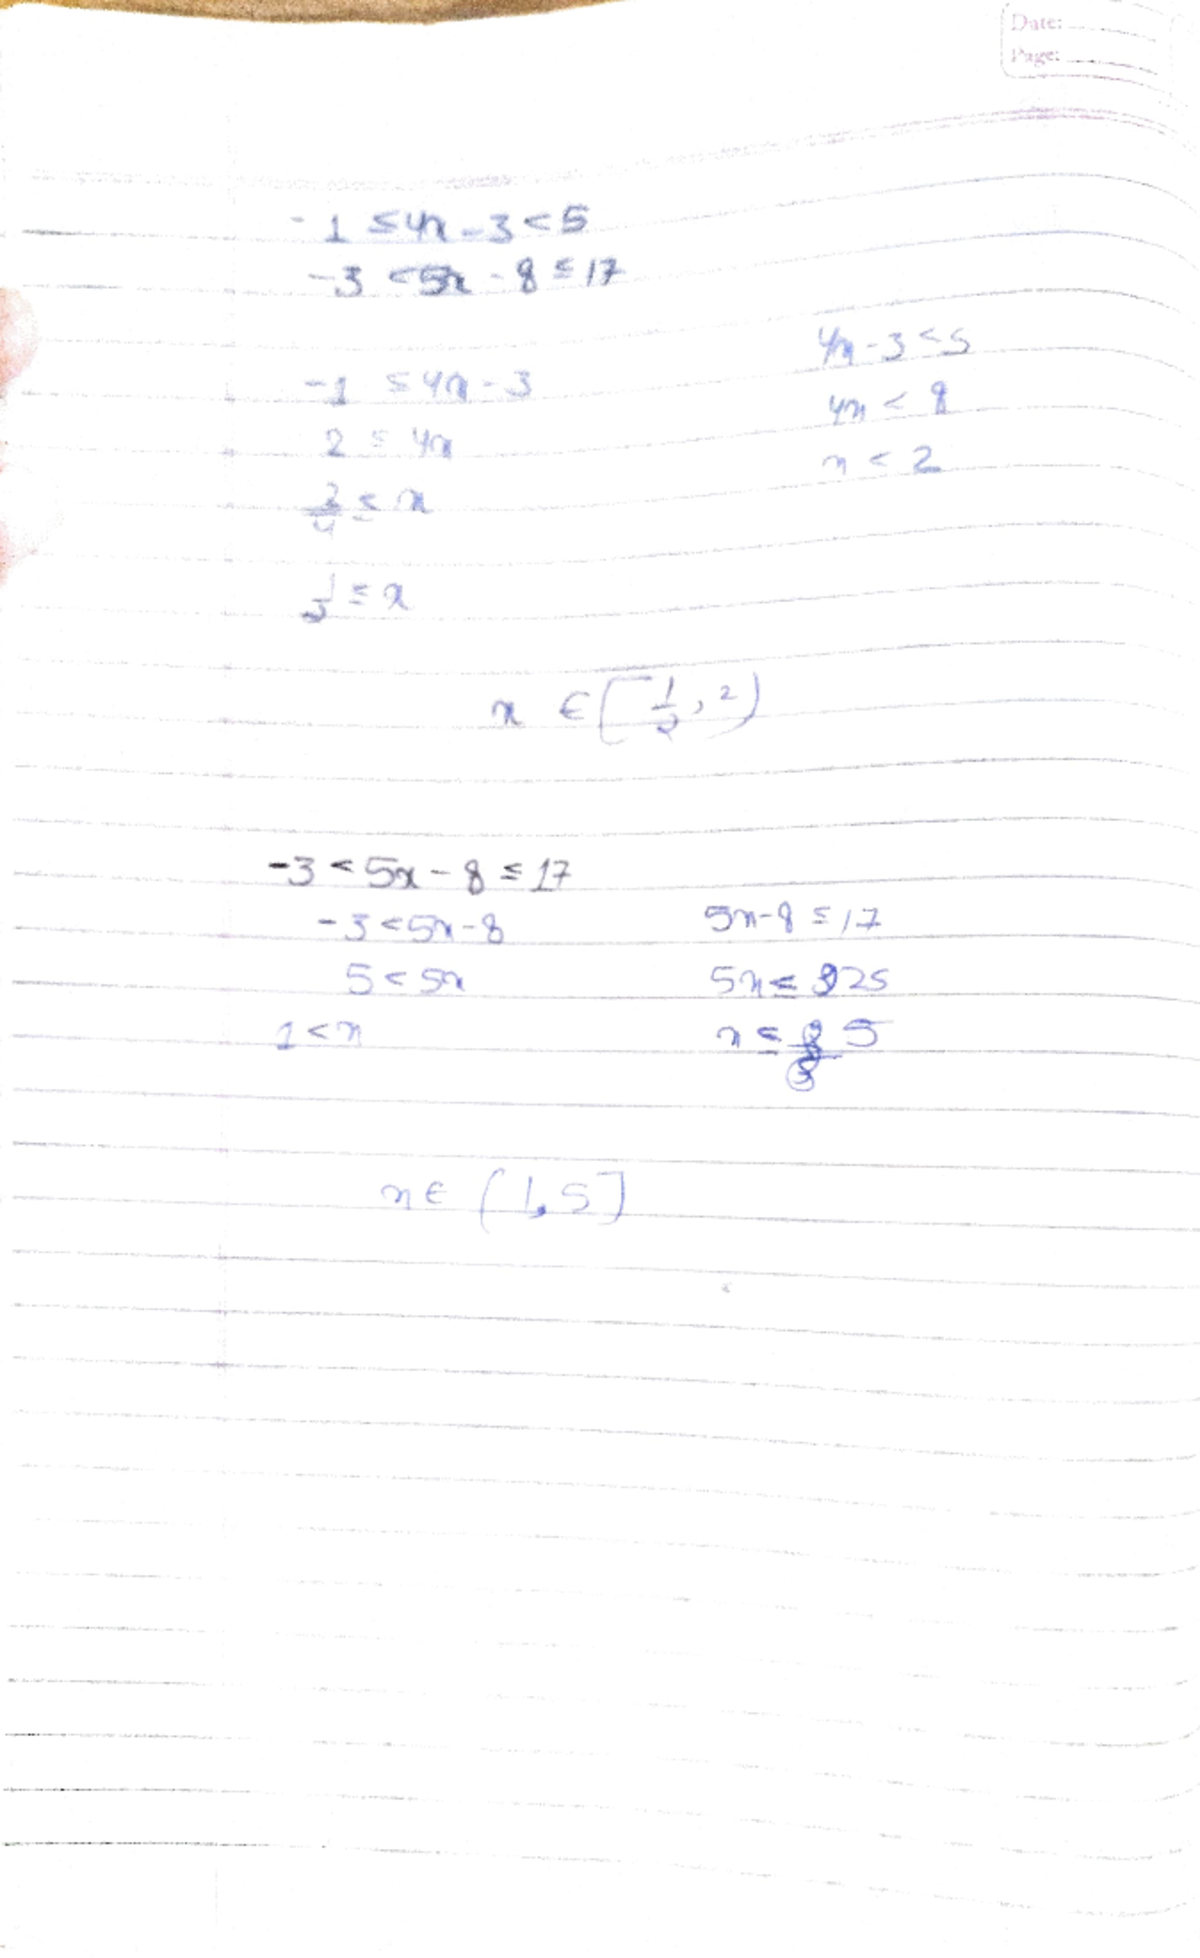 Date:
Page:
-1 ≤ 4x - 3 < 5
-3 < 5x - 8 ≤ 17
-1 ≤ 4x - 3
2 ≤ 4x
2/4 ≤ x
1/2 ≤ x
4x - 3 < 5
4x < 8
x < 2
x ∈ [1/2, 2)
-3 < 5x - 8 ≤ 17
-3 < 5x - 8
5 < 5x
1 < x
5x - 8 ≤ 17
5x ≤ 25
x ≤ 5
x ∈ (1, 5]